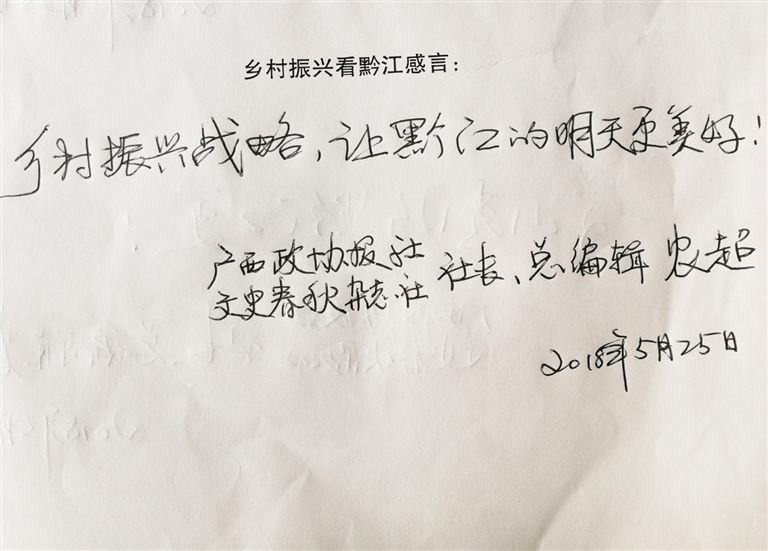 乡村振兴看黔江感言：
乡村振兴战略，让黔江的明天更美好！
广西政协报社
文史春秋杂志社
社长、总编辑 农超
2018年5月25日